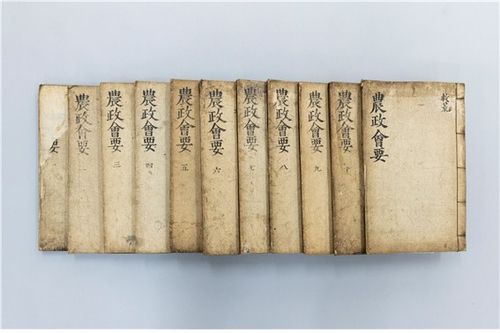 要
農政會要
農政會要 三
農政會要 四
農政會要 五
農政會要 六
農政會要 七
農政會要 八
農政會要 九
農政會要 十
農政會要